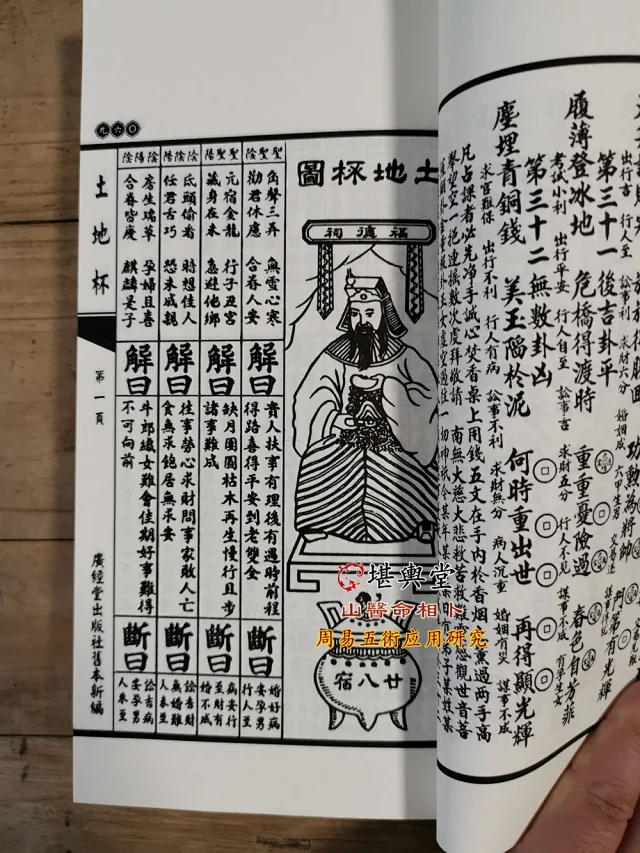 出行吉 行人至 訟事利 求財六分 婚姻成 六甲生男
第三十一 後吉卦平
履薄登冰地 危橋得渡時 重重憂險過 春色自芳菲
考試小利 出行平安 行人自至 訟事吉 求財五分 行人不見 謀事不成 有孕生女
第三十二 無数卦凶
塵埋青銅錢 美玉陷於泥 何時重出世 再得顯光輝
求官難保 出行不利 行人有病 訟事不利 求財無分 病人沉重 婚姻有災 謀事不成
凡占課者必先净手誠心焚香桌上用錢五文在手內於香烟上熏過兩手高
擎望空一把連搖數次虔拜敬請 南無大慈大悲救苦救難 觀世音菩
土地杯圖
福德祠
廿八宿
聖聖陰
角聲三弄 無雪心寒
勸君休應 合眷人安
解曰
貴人扶事有理後有遇時前程
得路喜得平安到老雙全
斷曰
婚好病安孕男行人至
聖聖陽
亢宿金龍 行子丑宮
藏身在未 急避他鄉
解曰
缺月團圓枯木再生慢行且步
諸事難成
斷曰
病安行至財有婚不成
陰陰陽
氐頭偷看 時想佳人
任君舌巧 恐未成親
解曰
往事勞心求財問事家敗人亡
食無求飽居無求安
斷曰
訟吉財無婚難人未至
陰陽陰
房生瑞草 孕婦且喜
合眷皆慶 麒麟是子
解曰
牛郎織女難會佳期好事難得
不可向前
斷曰
訟吉病安孕男人未至
土地杯
第一頁
廣經堂出版社舊本新編
九六〇
堪輿堂
山醫命相卜
周易五術应用研究